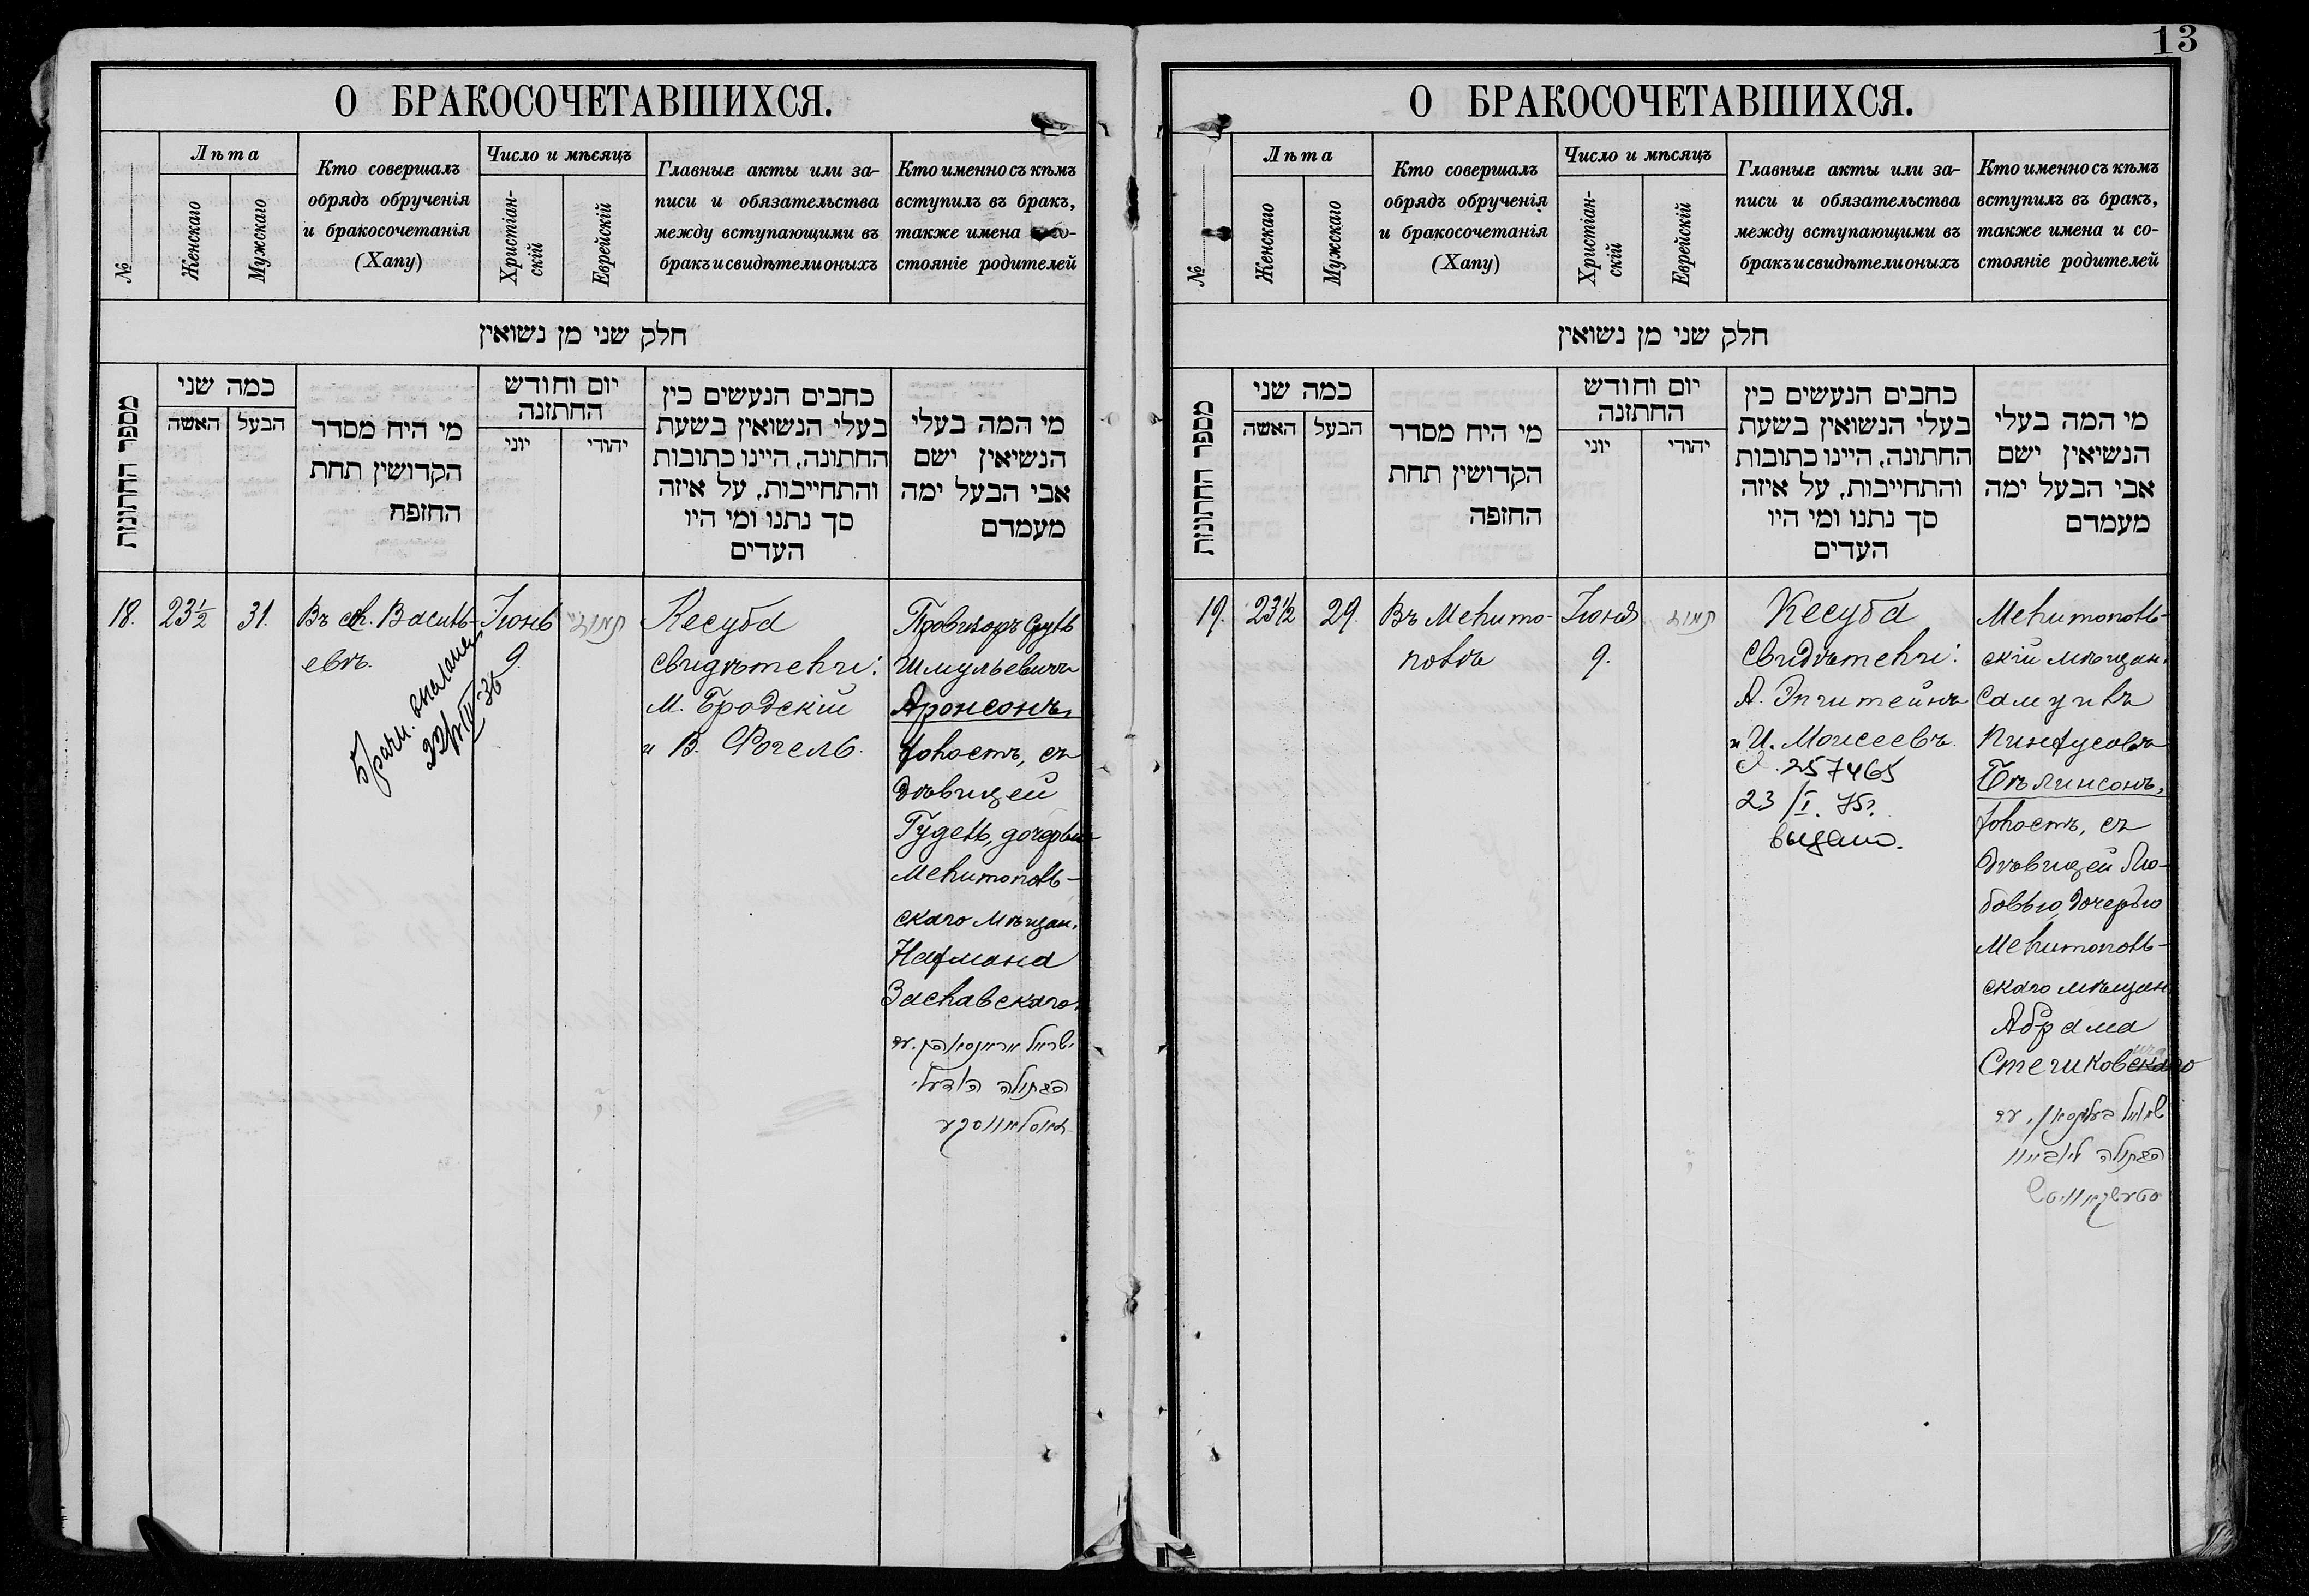 13
О БРАКОСОЧЕТАВШИХСЯ.
№
Лѣта
Женскаго
Мужскаго
Кто совершалъ
обрядъ обрученія
и бракосочетанія
(Хапу)
Число и мѣсяцъ
Христіан-
скій
Еврейскій
Главные акты или за-
писи и обязательства
между вступающими въ
бракъ и свидѣтели оныхъ
Кто именно съ кѣмъ
вступилъ въ бракъ,
также имена
стояніе родителей
חלק שני מן נשואין
מספר החתונות
כמה שני
האשה
הבעל
מי היח מסדר
הקדושין תחת
החזפח
יום וחודש
החתזנה
יוני
יהודי
כחבים הנעשים כין
בעלי הנשואין בשעת
החתונה, היינו כתובות
והתחייבות, על איזה
סך נתנו ומי היו
העדים
מי המה בעלי
הנשיאין ישם
אבי הבעל ימה
מעמדם
18.
23½
31.
Въ ст. Василь-
евъ.
Іюнь
9.
תמוז
Кесуба
Свидѣтели:
М. Бродскій
и В. Фогель.
Провизоръ
Шмульевичъ
Аронсонъ,
холостъ, съ
дѣвицей
Гудель, дочерью
Мелитополь-
скаго мѣщан.
Нахмана
Заславскаго.
הבתולה
О БРАКОСОЧЕТАВШИХСЯ.
№
Лѣта
Женскаго
Мужскаго
Кто совершалъ
обрядъ обрученія
и бракосочетанія
(Хапу)
Число и мѣсяцъ
Христіан-
скій
Еврейскій
Главные акты или за-
писи и обязательства
между вступающими въ
бракъ и свидѣтели оныхъ
Кто именно съ кѣмъ
вступилъ въ бракъ,
также имена и со-
стояніе родителей
חלק שני מן נשואין
מספר החתונות
כמה שני
האשה
הבעל
מי היח מסדר
הקדושין תחת
החזפה
יום וחודש
החתזנה
יוני
יהודי
כחבים הנעשים כין
בעלי הנשואין בשעת
החתונה, היינו כתובות
והתחייבות, על איזה
סך נתנו ומי היו
העדים
מי המה בעלי
הנשיאין ישם
אבי הבעל ימה
מעמדם
19.
23½
29.
Въ Мелито-
полѣ
Іюня
9.
תמוז
Кесуба
Свидѣтели:
А. Эпштейнъ
и И. Моисеевъ.
257465
23/I. 75г.
выдано.
Мелитополь-
скій мѣщан.
Самуилъ
Пинхусовъ
Бѣлинсонъ,
холостъ, съ
дѣвицей Лю-
бовью, дочерью
Мелитополь-
скаго мѣщан.
Абрама
הבתולה